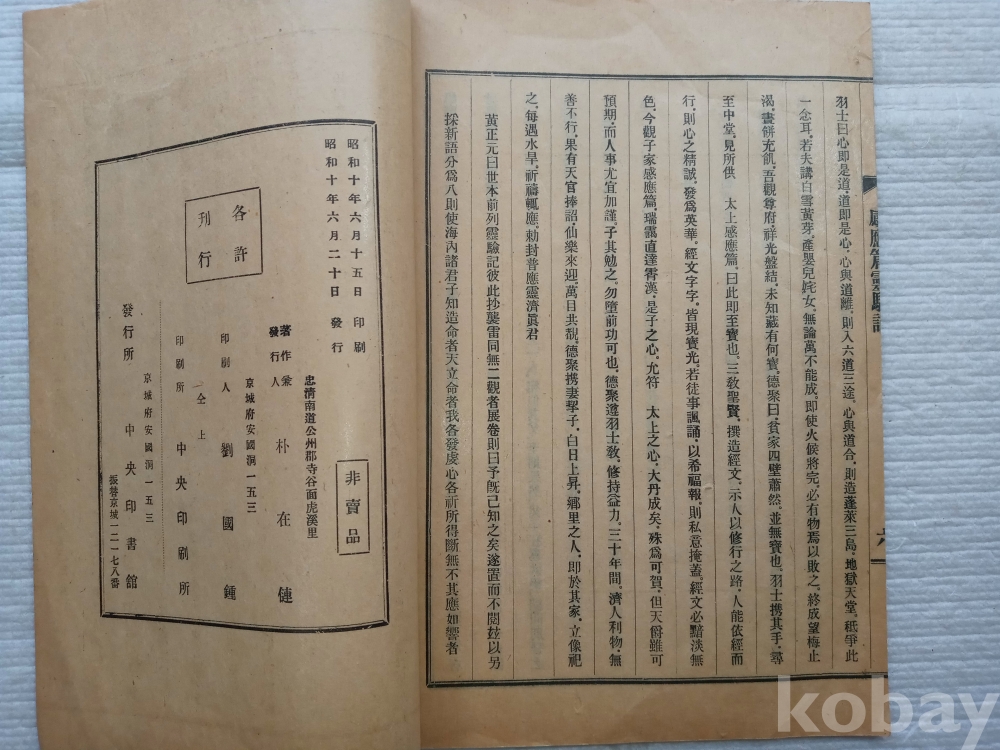 羽士曰心卽是道、道卽是心、心與道離、則入六道三途、心與道合、則造蓬萊三島、地獄天堂、秪爭此
一念耳、若夫講白雪黃芽、產嬰兒姹女、無論萬不能成、卽使火候將完、必有物焉以敗之、終成望梅止
渴、畫餠充飢、吾觀尊府、祥光盤結、未知藏有何寶、德聚曰、貧家四壁蕭然、並無寶也、羽士携其手、尋
至中堂、見所供　太上感應篇、曰此卽至寶也、三敎聖賢、撰造經文、示人以修行之路、人能依經而
行、則心之精誠、發爲英華、經文字字、皆現寶光、若徒事諷誦、以希福報、則私意掩蓋、經文必黯淡無
色、今觀子家感應篇、瑞靄直達霄漢、是子之心、允符　太上之心、大丹成矣、殊爲可賀、但天爵雖可
預期、而人事尤宜加謹、子其勉之、勿墮前功可也、德聚遵羽士敎、修持益力、三十年間、濟人利物、無
善不行、果有天官捧詔、仙樂來迎、萬目共覩、德聚携妻挈子、白日上昇、鄕里之人、卽於其家、立像祀
之、每遇水旱、祈禱輒應、勅封普應靈濟眞君
黃正元曰世本前列靈驗記彼此抄襲雷同無二觀者展卷則曰予旣已知之矣遂置而不閱玆以另
採新語分爲八則使海內諸君子知造命者天立命者我各發虔心各祈所得斷無不其應如響者
感應篇靈驗記
六
昭和十年六月十五日 印刷
昭和十年六月二十日 發行
各許
刊行
非賣品
忠淸南道公州郡寺谷面虎溪里
著作兼
發行人 朴在𨩙
京城府安國洞一五三
印刷人 劉國鍾
仝上
印刷所 中央印刷所
京城府安國洞一五三
發行所 中央印書館
振替京城一二一七八番
kobay